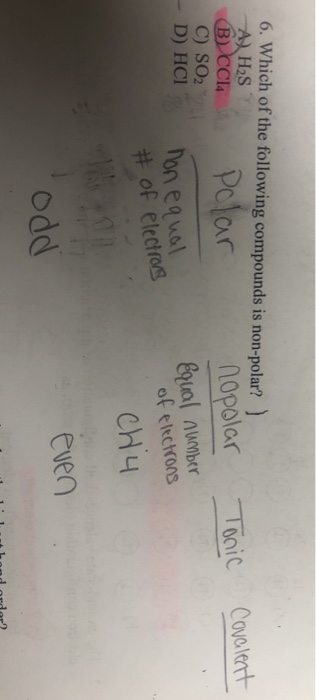 6. Which of the following compounds is non-polar?
A) H₂S
B) CCl₄
C) SO₂
D) HCl
Polar
non equal
# of electrons
odd
nopolar
Equal number
of electrons
CH4
even
Ionic
Covalent